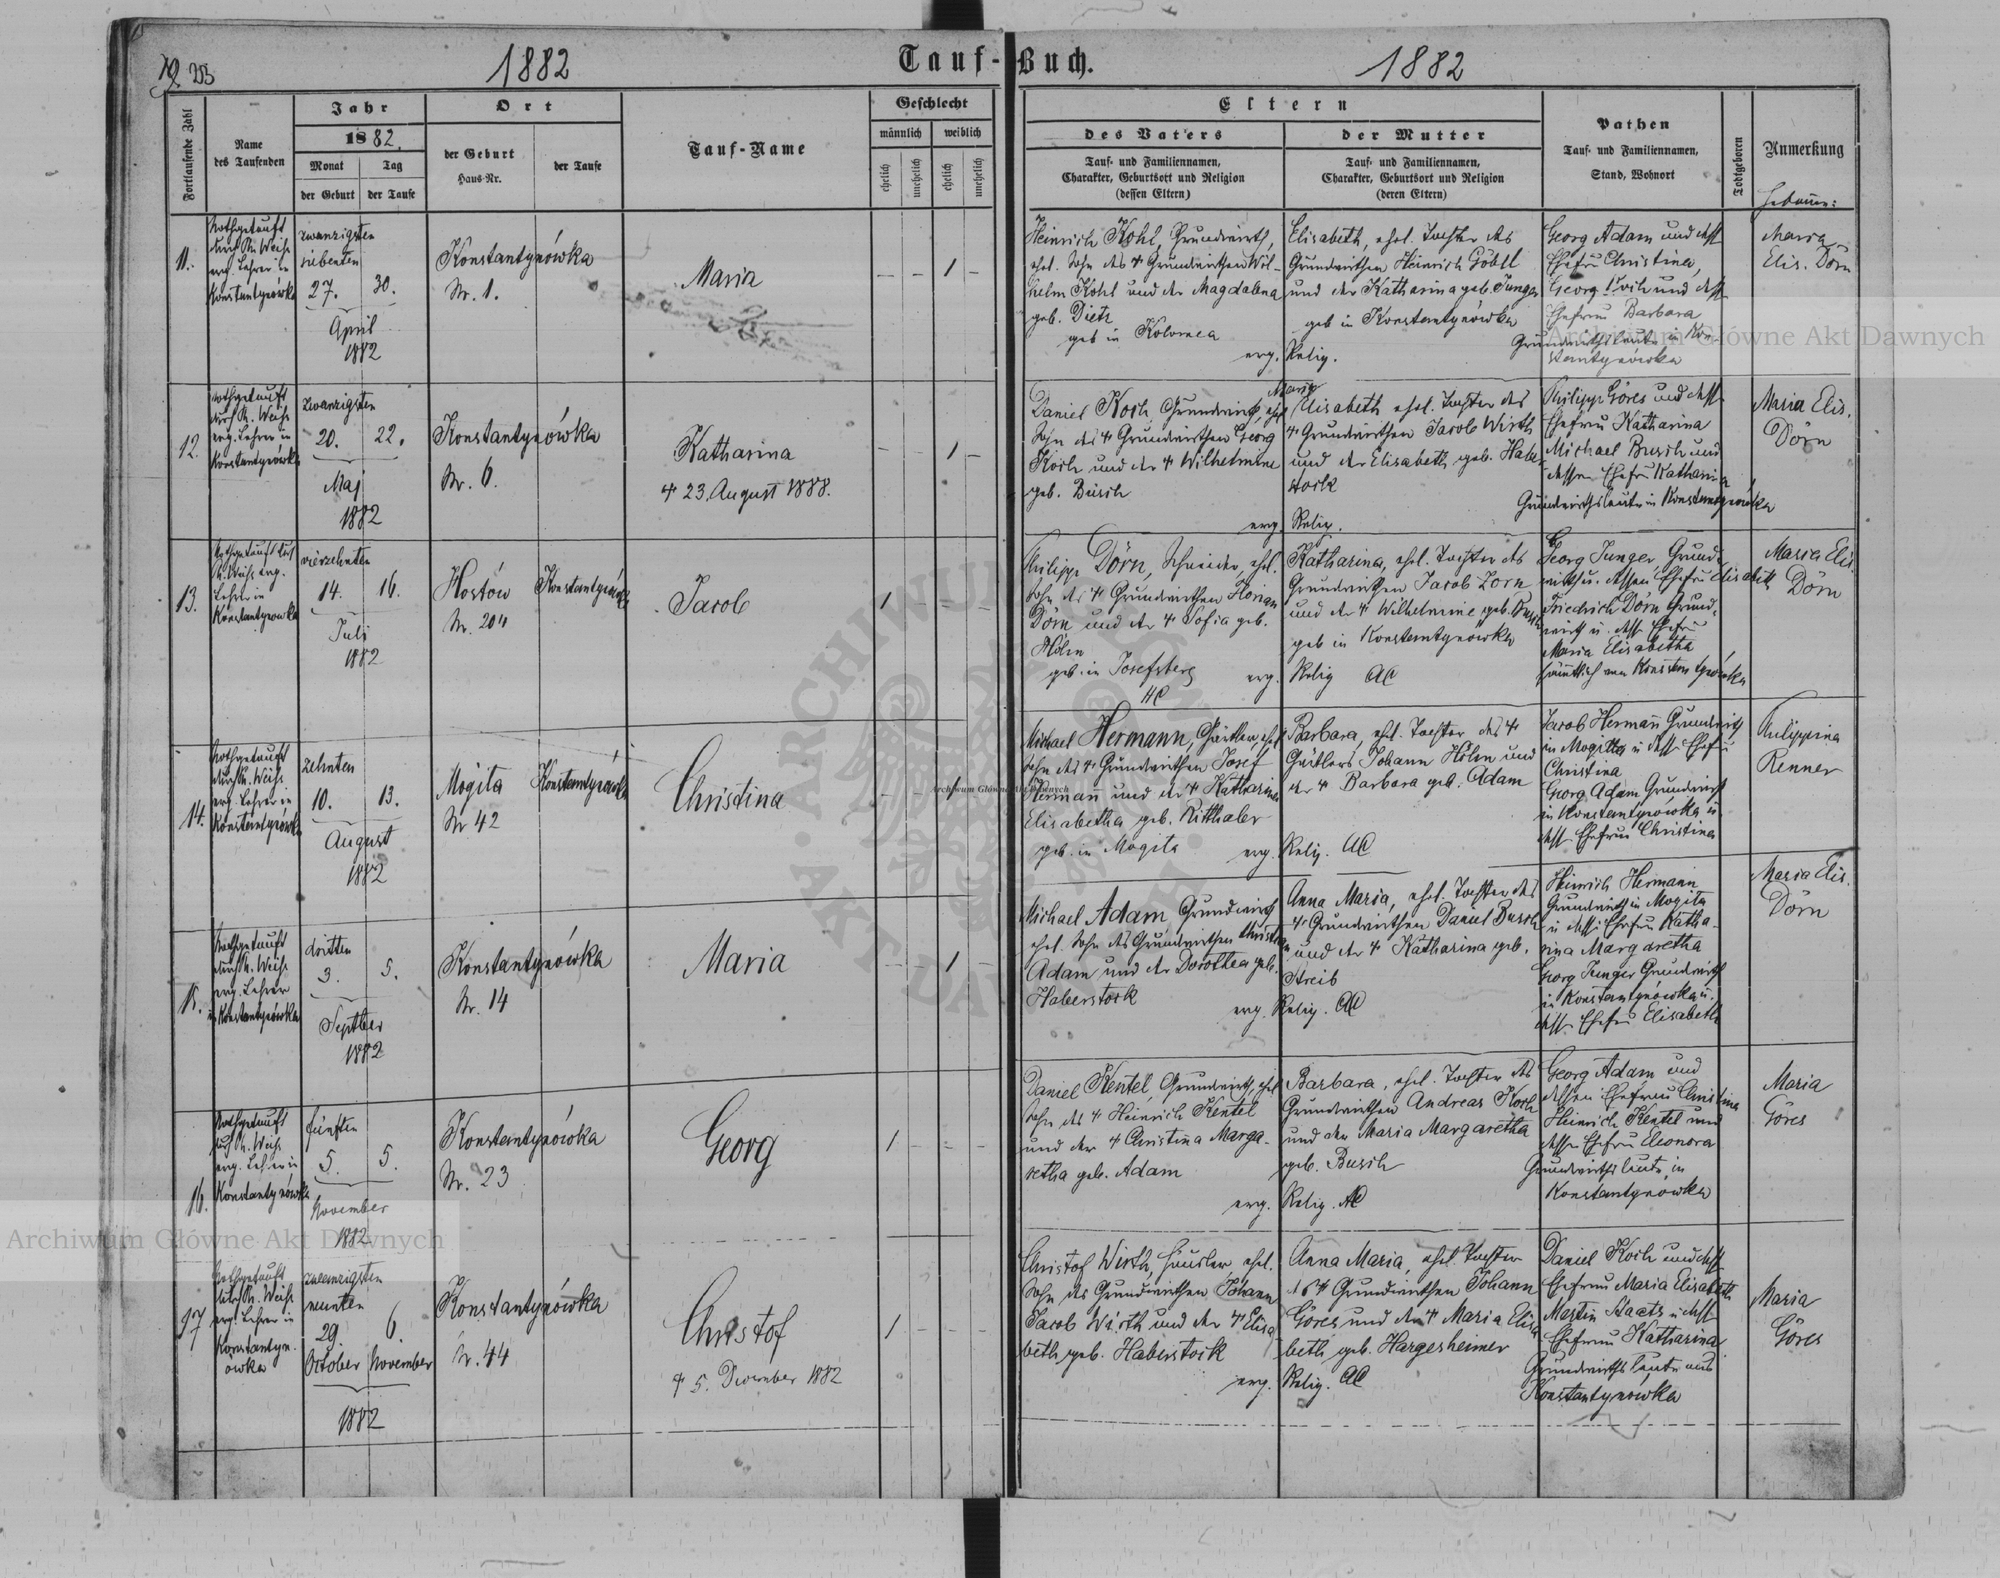 79. 253
1882
Tauf-Buch.
1882
Fortlaufende Zahl
Name
des Taufenden
Jahr
1882.
Monat
Tag
der Geburt
der Taufe
Ort
der Geburt
Haus-Nr.
der Taufe
Tauf-Name
Geschlecht
männlich
weiblich
ehelich
unehelich
ehelich
unehelich
Eltern
des Vaters
Tauf- und Familiennamen,
Charakter, Geburtsort und Religion
(dessen Eltern)
der Mutter
Tauf- und Familiennamen,
Charakter, Geburtsort und Religion
(deren Eltern)
Pathen
Tauf- und Familiennamen,
Stand, Wohnort
Todtgeboren
Anmerkung
Hebamme:
11.
Nothgetauft
durch Weihe
erg. Lehrer in
Konstantynówka
zwanzigsten
siebenten
27. 30.
April
1882
Konstantynówka
Nr. 1.
Maria
– – 1 –
Heinrich Kohl, Grundwirth,
ehel. Sohn des † Grundwirthen Wil-
helm Kohl und der Magdalena
geb. Dietz
geb in Kolomea
erg. Relig.
Elisabeth, ehel. Tochter des
Grundwirthen Heinrich Göbel
und der Katharina geb. Junger
geb in Konstantynówka
Georg Adam und dess
Ehefrau Christina,
Georg Koch und dess
Ehefrau Barbara
Grundwirthsleute in Kon-
stantynówka
Maria
Elis. Dörn
12.
Nothgetauft
durch Weihe
erg. Lehrer in
Konstantynówka
zwanzigsten
20. 22.
Maj
1882
Konstantynówka
Nr. 6.
Katharina
† 23. August 1888.
– – 1 –
Daniel Koch, Grundwirth, ehel
Sohn des † Grundwirthen Georg
Koch und der † Wilhelmine
geb. Busch
erg. Relig.
Maria
Elisabeth ehel. Tochter des
† Grundwirthen Jacob Wirth
und der Elisabeth geb. Haber-
stock
Philipp Göres und dess
Ehefrau Katharina
Michael Busch und
dessen Ehefr Katharina
Grundwirthsleute in Konstantynówka
Maria Elis.
Dörn
13.
Nothgetauft durch
Weihe erg.
Lehrer in
Konstantynowka
vierzehnten
14. 16.
Juli
1882
Hostów
Nr. 204
Konstantynówka
Jacob
1 – – –
Philipp Dörn, Schneider, ehel.
Sohn des † Grundwirthen Florian
Dörn und der † Sofia geb.
Höhn
geb. in Josefsberg
HC
erg. Relig AC
Katharina, ehel. Tochter des
Grundwirthen Jacob Zorn
und der † Wilhelmine geb. Busch
geb in Konstantynówka
Georg Junger, Grund-
wirth u. dessen Ehefr Elisabeth
Friedrich Dörn Grund-
wirth u. dess Ehefr
Maria Elisabetha
sämmtlich von Konstantynówka
Maria Elis.
Dörn
14.
Nothgetauft
durch Weihe
erg. Lehrer in
Konstantynówka
zehnten
10. 13.
August
1882
Mogiła
Nr 42
Konstantynówka
Christina
– – 1 –
Michael Hermann, Gärtler, ehel
Sohn des † Grundwirthen Josef
Hermann und der † Katharina
Elisabetha geb. Ritthaler
geb. in Mogiła
erg. Relig. AC
Barbara, ehel. Tochter des †
Gärtlers Johann Höhn und
der † Barbara geb. Adam
Jacob Hermann Grundwirth
in Mogiłla u dess Ehefr
Christina
Georg Adam Grundwirth
in Konstantynówka u
dess Ehefrau Christina
Philippina
Renner
15.
Nothgetauft
durch Weihe
erg. Lehrer
in Konstantynówka
dritten
3. 5.
Septber
1882
Konstantynówka
Nr. 14
Maria
– – 1 –
Michael Adam Grundwirth
ehel. Sohn des Grundwirthen Christian
Adam und der Dorothea geb.
Haberstock
erg. Relig. AC
Anna Maria, ehel. Tochter des
† Grundwirthen Daniel Busch
und der † Katharina geb.
Streib
Heinrich Hermann
Grundwirth in Mogiła
u dess Ehefrau Katha-
rina Margaretha
Georg Junger Grundwirth
in Konstantynówka u.
dess Ehefr Elisabeth
Maria Elis.
Dörn
16.
Nothgetauft
durch Weihe
erg. Lehrer in
Konstantynówka
fünften
5. 5.
November
1882
Konstantynówka
Nr. 23
Georg
1 – – –
Daniel Kentel, Grundwirth, ehel
Sohn des † Heinrich Kentel
und der † Christina Marga-
retha geb. Adam
erg. Relig. AC
Barbara, ehel. Tochter des
Grundwirthen Andreas Koch
und der Maria Margaretha
geb. Busch
Georg Adam und
dessen Ehefrau Christina
Heinrich Kentel und
dessen Ehefr Eleonora
Grundwirthsleute in
Konstantynówka
Maria
Göres
17
Nothgetauft
durch Weihe
erg. Lehrer in
Konstantyn-
ówka
zwanzigsten
neunten
29. 6.
October November
1882
Konstantynówka
Nr. 44
Christof
† 5. December 1882
1 – – –
Christof Wirth, Häusler ehel.
Sohn des Grundwirthen Johann
Jacob Wirth und der † Elisa-
beth geb. Haberstock
erg. Relig. AC
Anna Maria, ehel. Tochter
des † Grundwirthen Johann
Göres und der † Maria Elisa-
beth geb. Hargesheimer
Daniel Koch und dess
Ehefrau Maria Elisabeth
Martin Staetz u dess
Ehefrau Katharina
Grundwirthsleute aus
Konstantynówka
Maria
Göres
Archiwum Główne Akt Dawnych
Archiwum Główne Akt Dawnych
Archiwum Główne Akt Dawnych